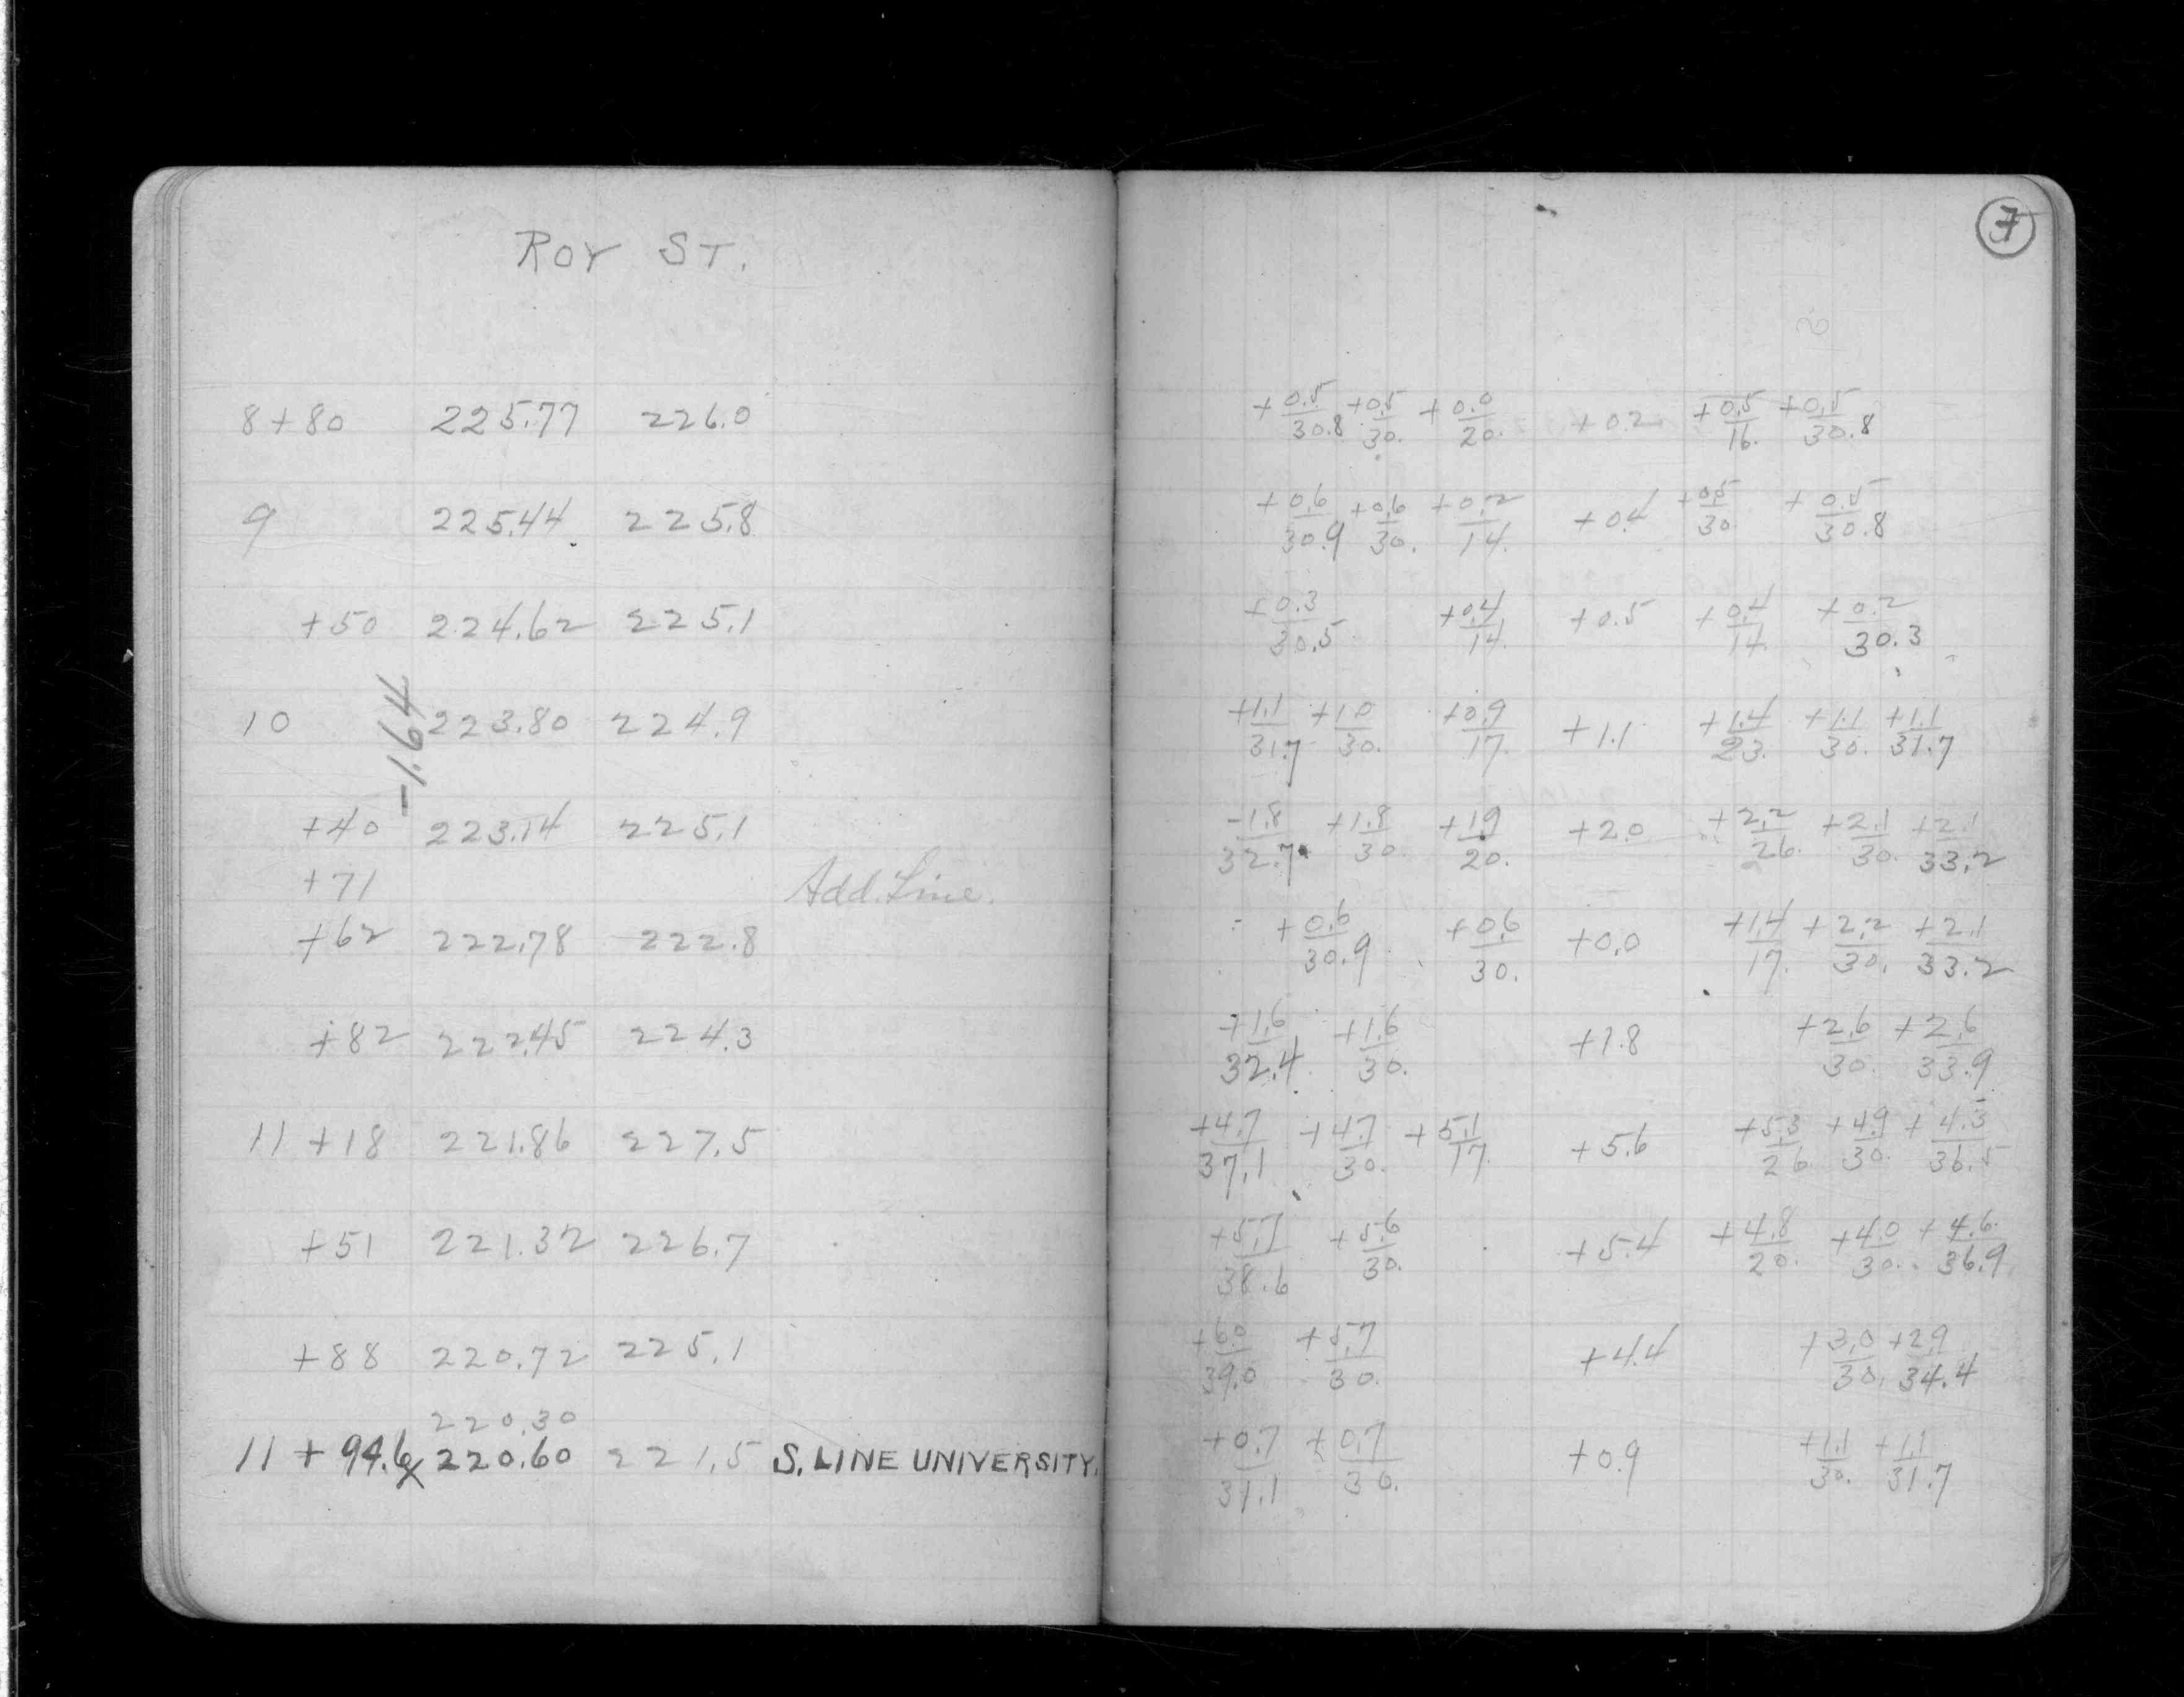 ROY ST.
8+80 225.77 226.0
9 225.44 225.8
+50 224.62 225.1
-1.64
10 223.80 224.9
+40 223.14 225.1
+71 Add. Line.
+62 222.78 222.8
+82 222.45 224.3
11 +18 221.86 227.5
+51 221.32 226.7
+88 220.72 225.1
220.30
11 + 94.6 220.60 221.5 S. LINE UNIVERSITY.
+0.5/30.8 +0.5/30. +0.0/20. +0.2 +0.5/16. +0.5/30.8
+0.6/30.9 +0.6/30. +0.2/14. +0.4 +0.5/30 +0.5/30.8
+0.3/30.5 +0.4/14. +0.5 +0.4/14. +0.2/30.3
+1.1/31.7 +1.0/30. +0.9/17. +1.1 +1.4/23. +1.1/30. +1.1/31.7
-1.8/32.7 +1.8/30. +1.9/20. +2.0 +2.2/26. +2.1/30. +2.1/33.2
+0.6/30.9 +0.6/30. +0.0 +1.4/17. +2.2/30. +2.1/33.2
+1.6/32.4 +1.6/30. +1.8 +2.6/30. +2.6/33.9
+4.7/37.1 +4.7/30. +5.1/17. +5.6 +5.3/26 +4.9/30. +4.3/36.5
+5.7/38.6 +5.6/30. +5.4 +4.8/20. +4.0/30. +4.6/36.9
+6.0/39.0 +5.7/30. +4.4 +3.0/30. +2.9/34.4
+0.7/31.1 +0.7/30. +0.9 +1.1/30. +1.1/31.7